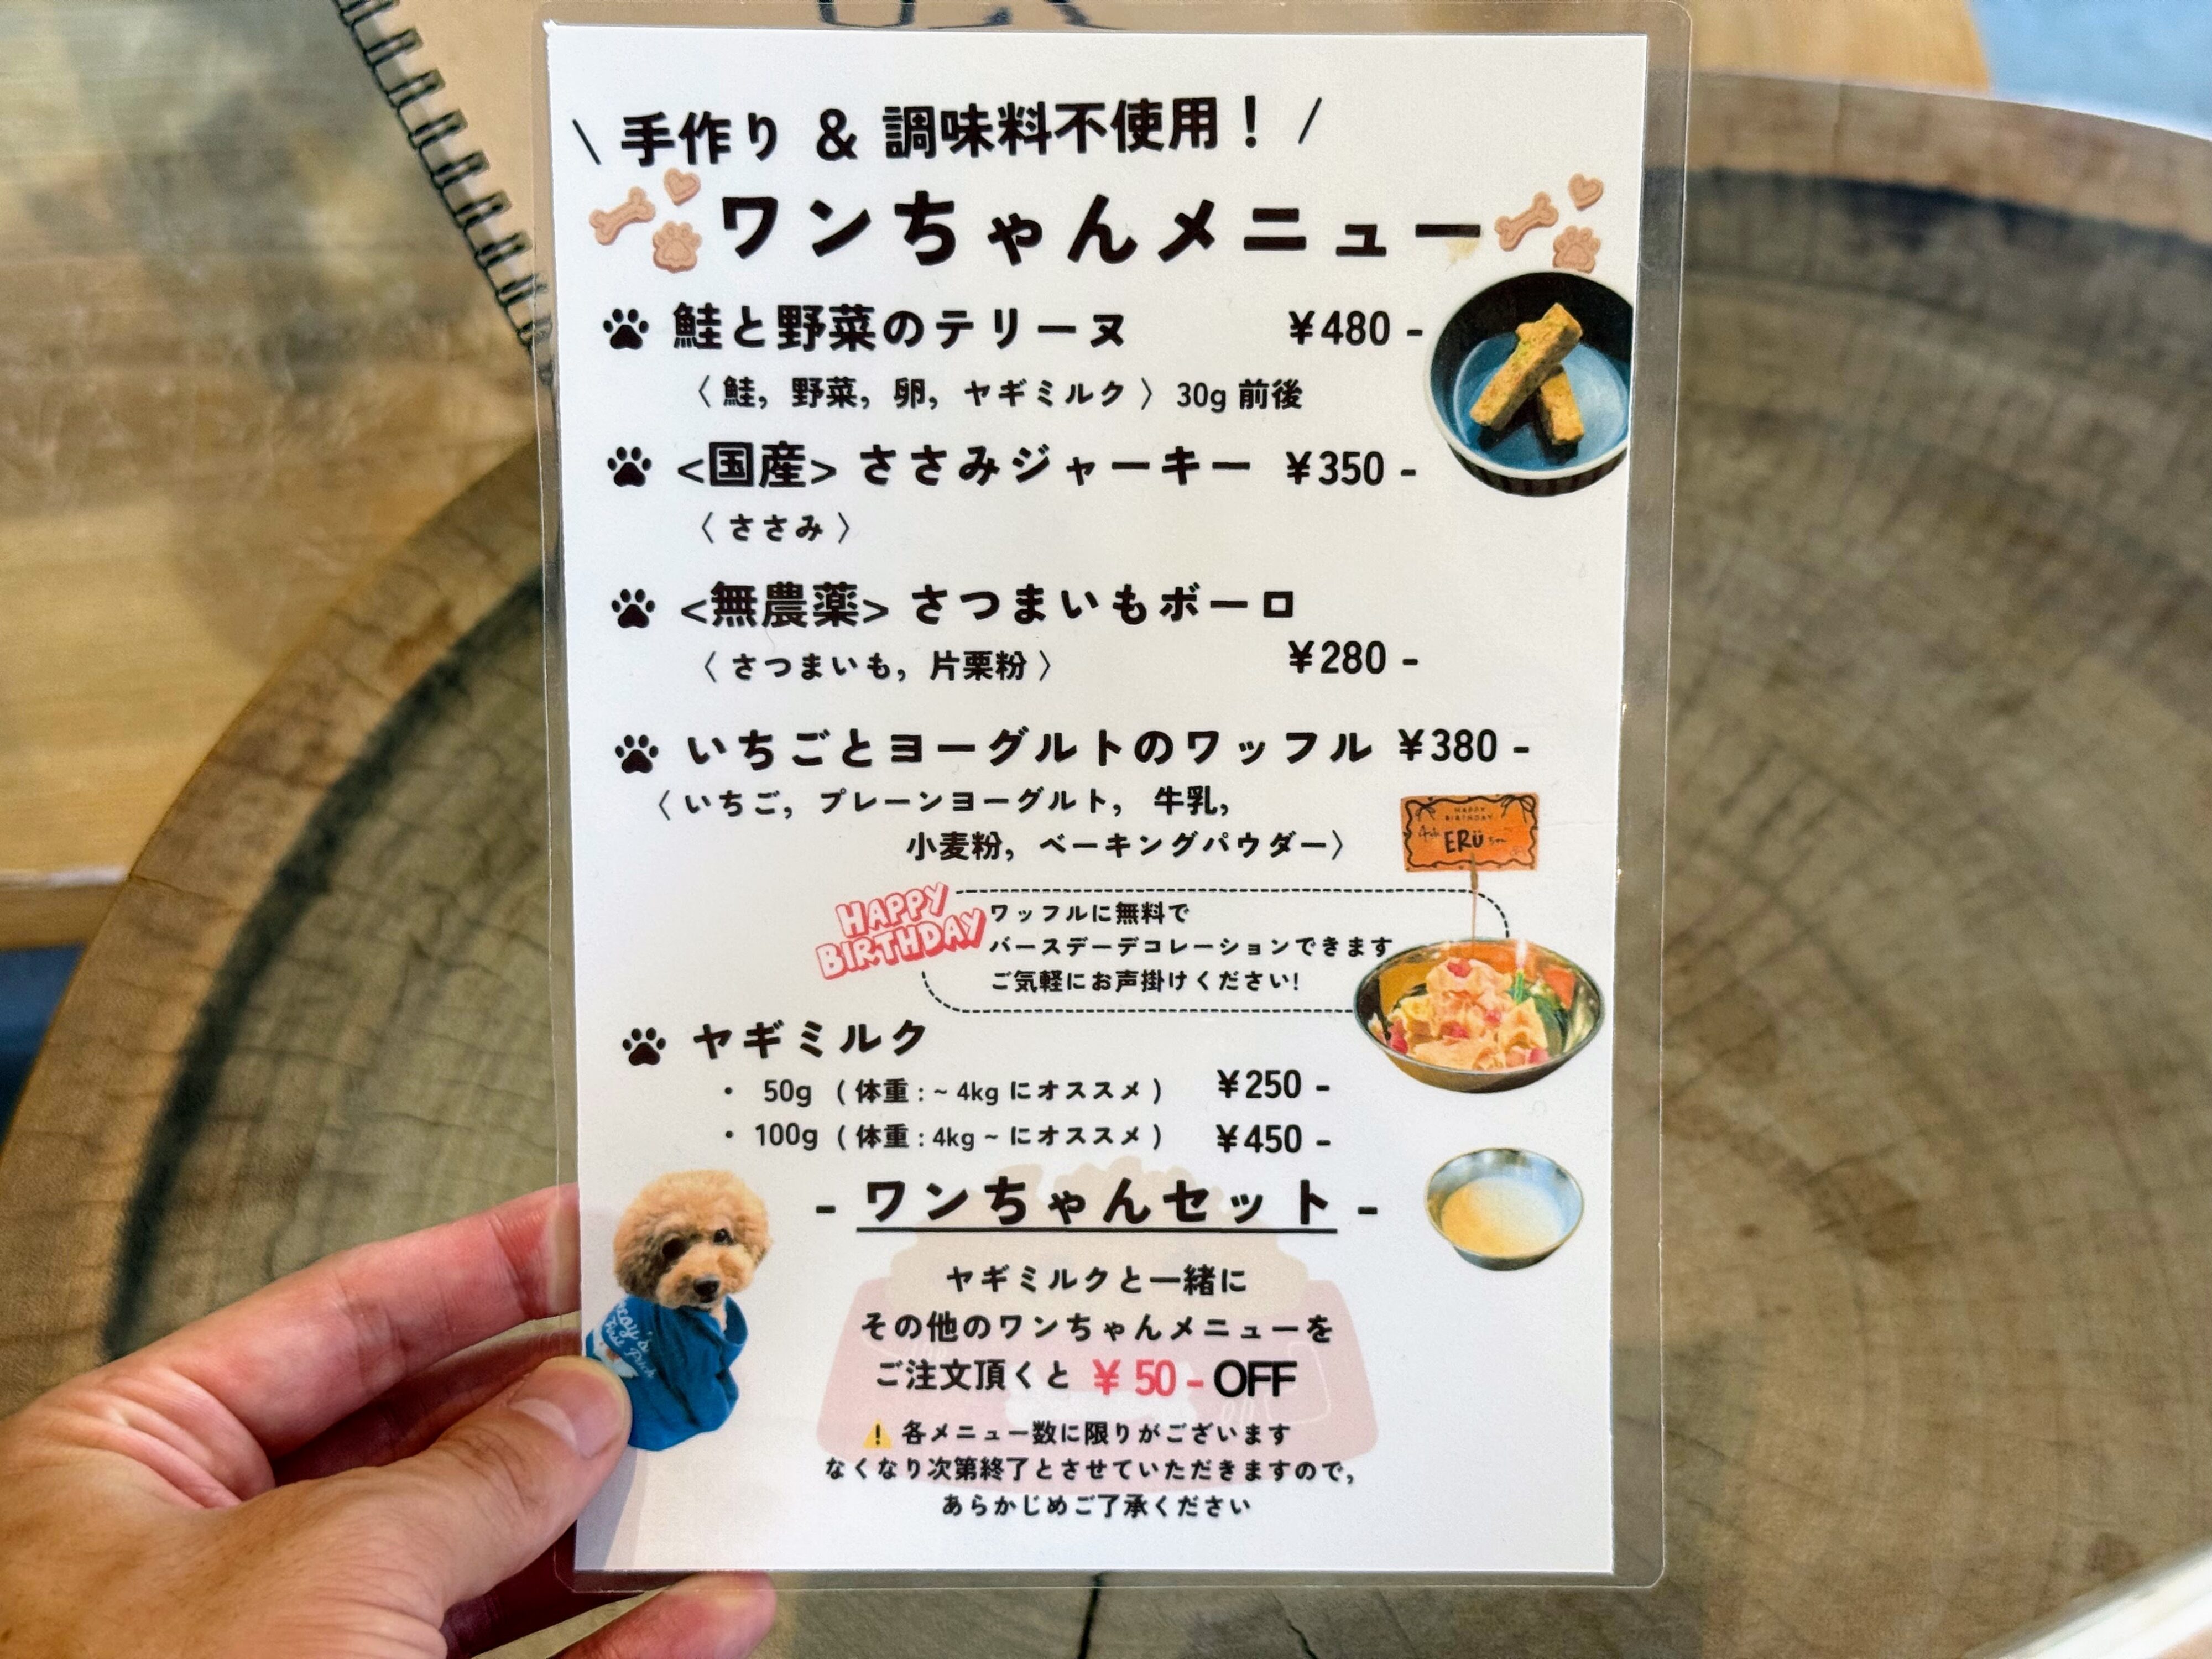 \ 手作り & 調味料不使用！ /
ワンちゃんメニュー
鮭と野菜のテリーヌ ¥480 -
〈 鮭, 野菜, 卵, ヤギミルク 〉 30g 前後
<国産> ささみジャーキー ¥350 -
〈 ささみ 〉
<無農薬> さつまいもボーロ
〈 さつまいも, 片栗粉 〉 ¥280 -
いちごとヨーグルトのワッフル ¥380 -
〈 いちご, プレーンヨーグルト, 牛乳,
小麦粉, ベーキングパウダー〉
HAPPY
BIRTHDAY
ERÜ
HAPPY
BIRTHDAY
ワッフルに無料で
バースデーデコレーションできます
ご気軽にお声掛けください!
ヤギミルク
・ 50g ( 体重 : ~ 4kg にオススメ ) ¥250 -
・ 100g ( 体重 : 4kg ~ にオススメ ) ¥450 -
- ワンちゃんセット -
ヤギミルクと一緒に
その他のワンちゃんメニューを
ご注文頂くと ¥ 50 - OFF
各メニュー数に限りがございます
なくなり次第終了とさせていただきますので,
あらかじめご了承ください